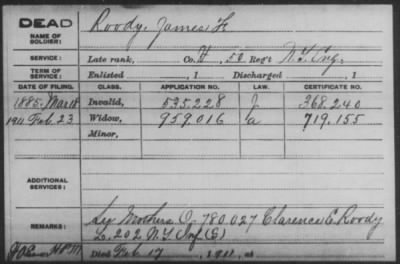 DEAD
NAME OF SOLDIER: Roody, James F
SERVICE: Late rank, Co. H, 50 Reg't N.Y. Eng.
TERM OF SERVICE: Enlisted , 1 Discharged , 1
DATE OF FILING. CLASS. APPLICATION NO. LAW. CERTIFICATE NO.
1885, Mar 18 Invalid, 535.228 J 368.240
1911 Feb. 23 Widow, 959.016 a 719.155
Minor,
ADDITIONAL SERVICES:
REMARKS: See Mothers O. 780.027 Clarence E. Roody
L. 202 N.Y. Inf (S)
Died Feb 17, 1911, at